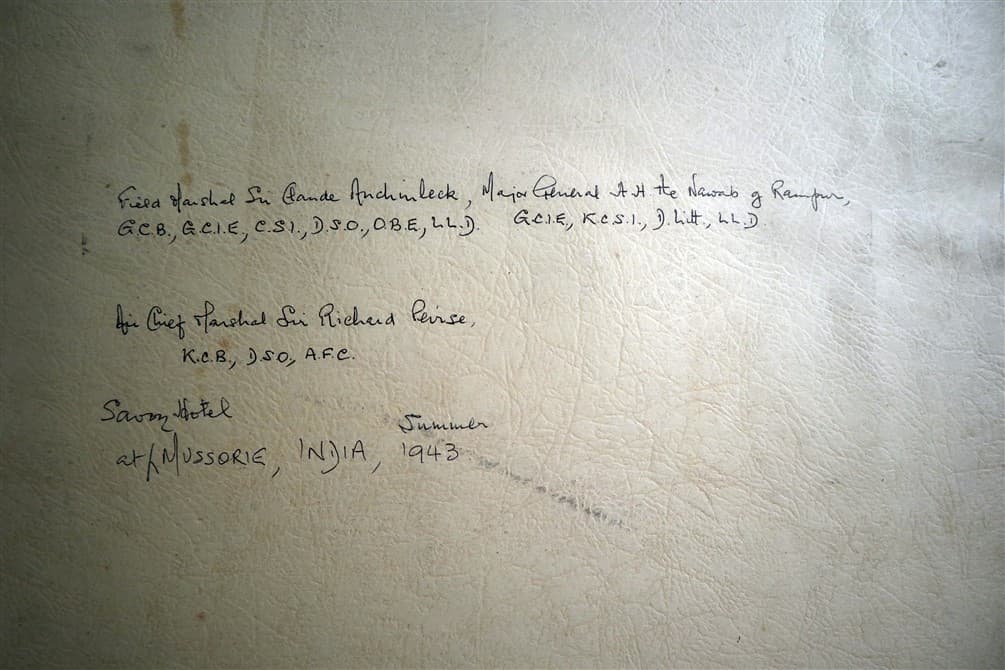 Field Marshal Sir Claude Auchinleck, Major General H.H. the Nawab of Rampur,
G.C.B., G.C.I.E., C.S.I., D.S.O., O.B.E., LL.D. G.C.I.E., K.C.S.I., D.Litt., LL.D.
Air Chief Marshal Sir Richard Peirse,
K.C.B., D.S.O., A.F.C.
Savoy Hotel
at MUSSORIE, INDIA, Summer 1943